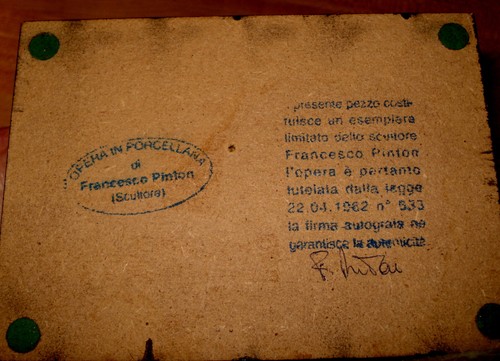 "OPERA IN PORCELLANA
di
Francesco Pinton
(Scultore)
presente pezzo costi-
tuisce un esemplare
limitato dello scultore
Francesco Pinton
l'opera è pertanto
tutelata dalla legge
22.04.1982 n° 633
la firma autografa ne
garantisce la autenticità